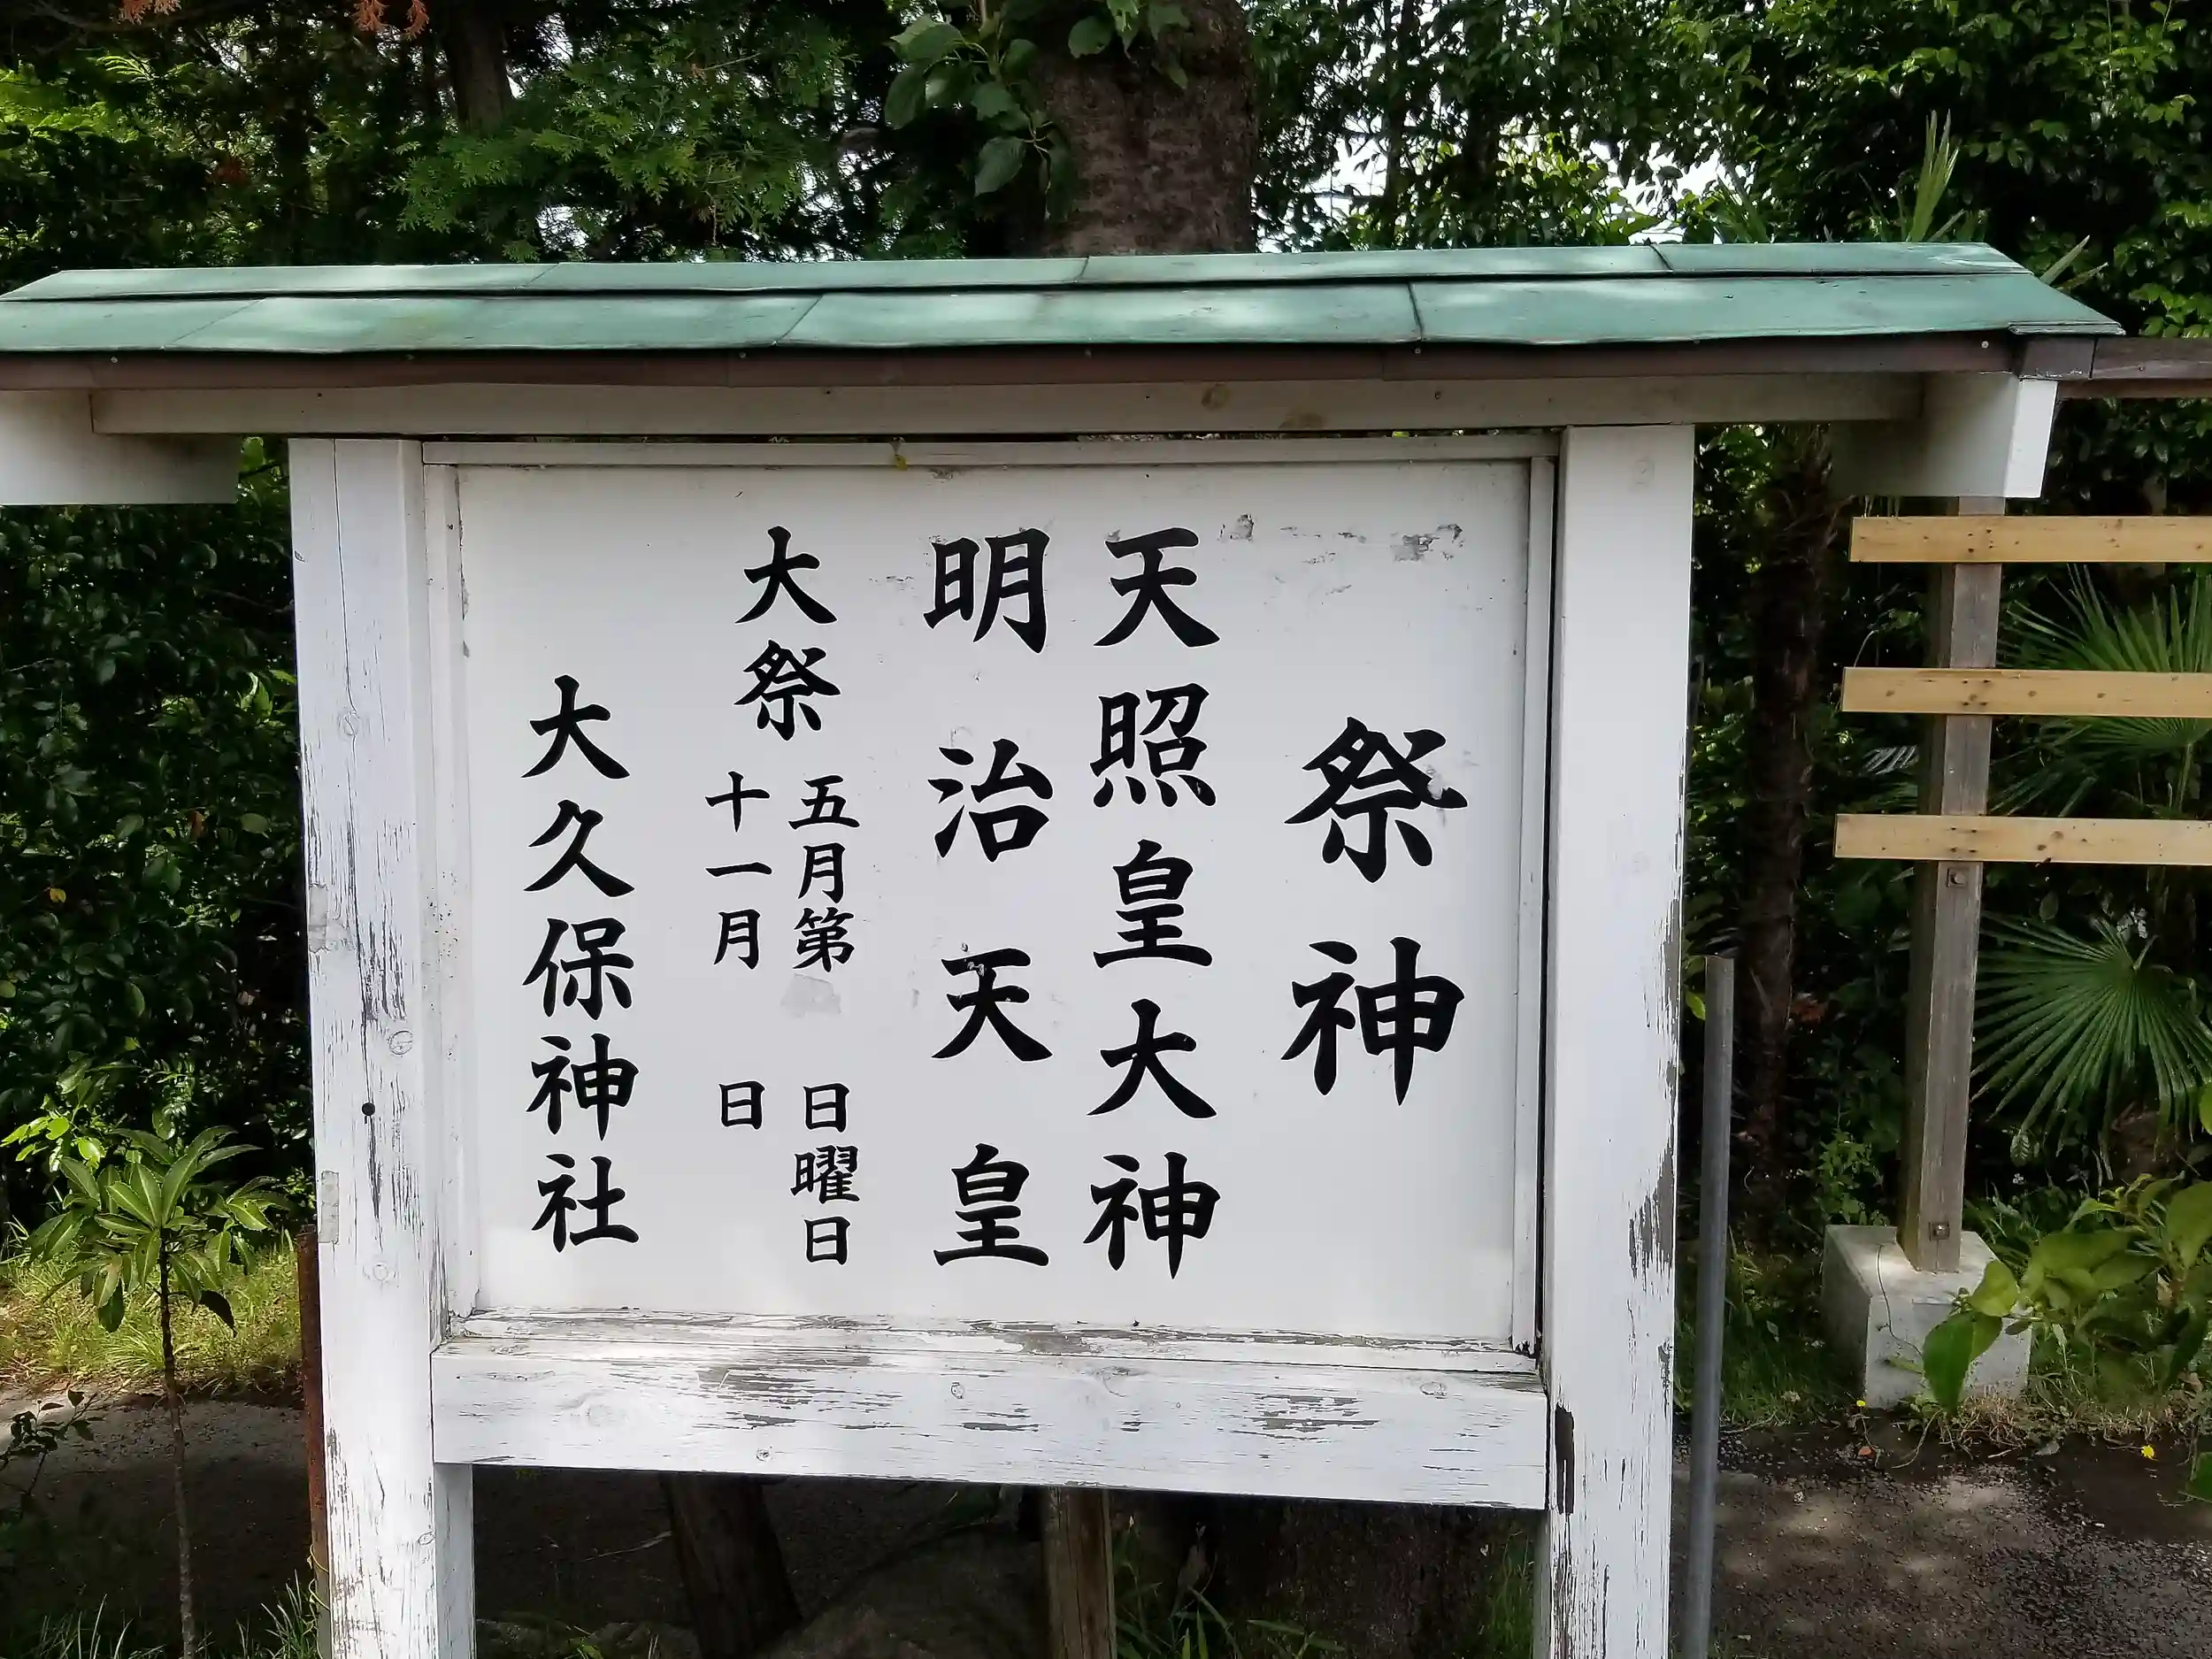 祭神
天照皇大神
明治天皇
大祭
五月第 日曜日
十一月 日
大久保神社